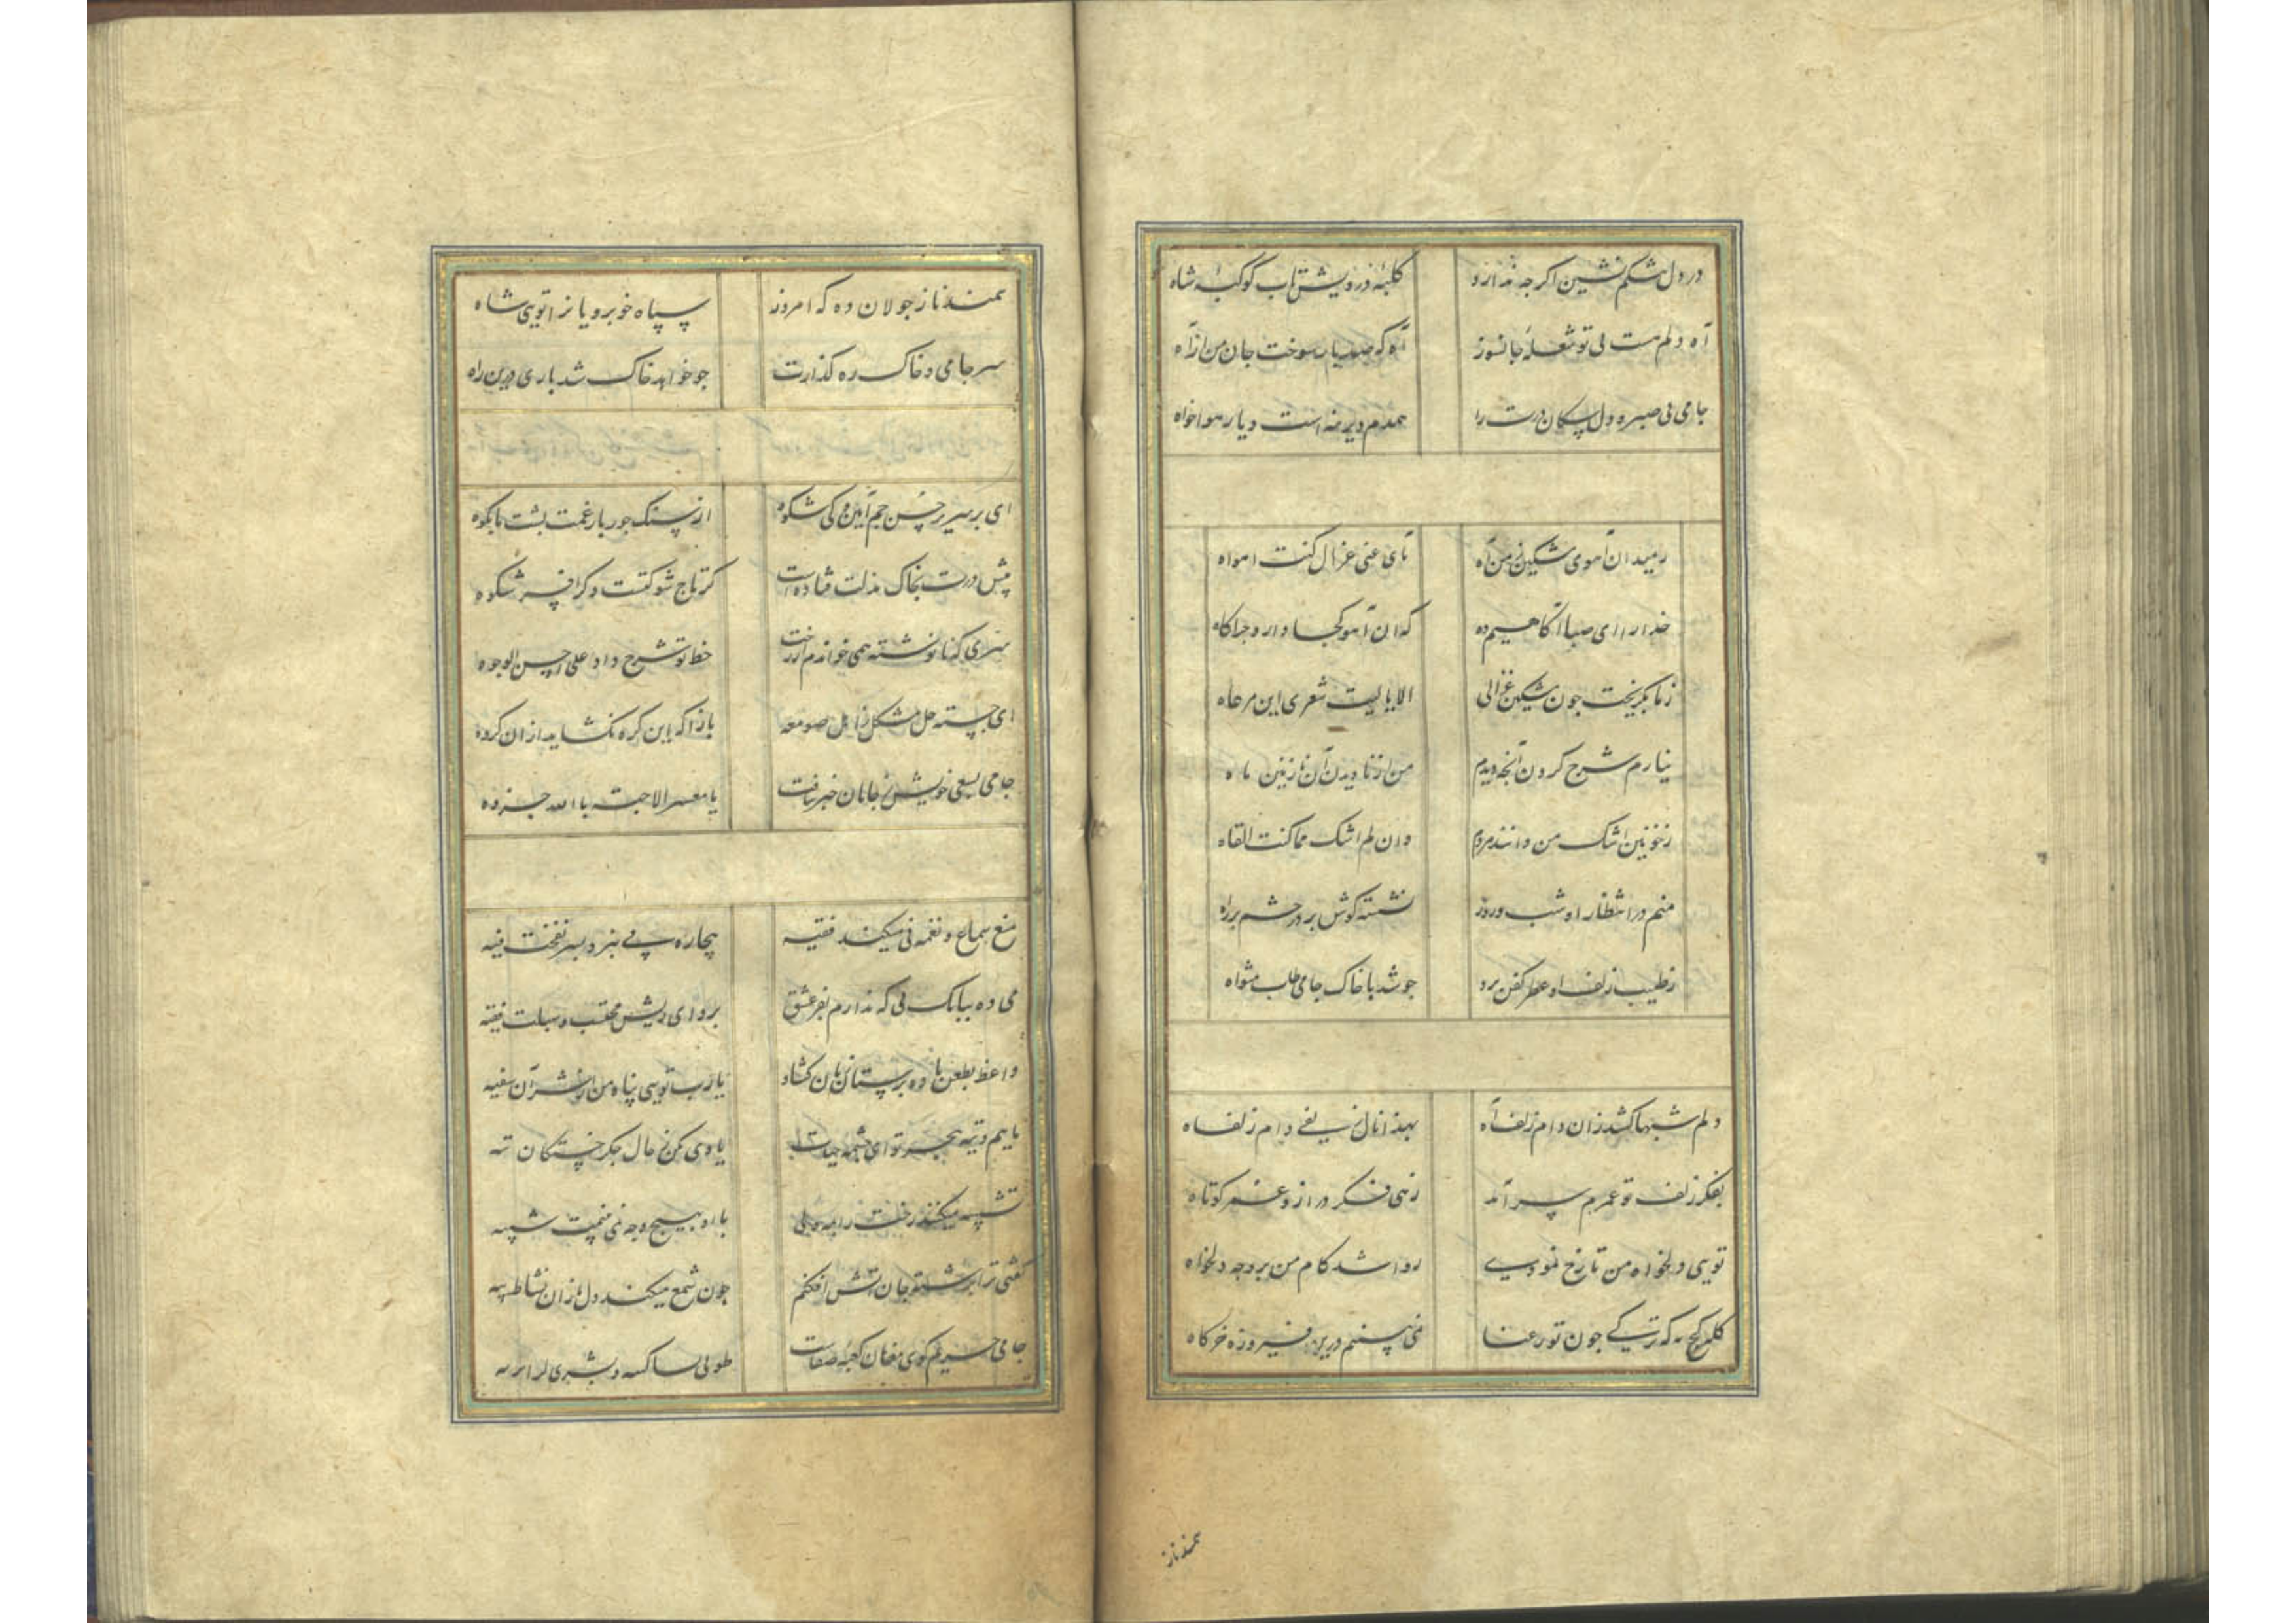 در دل تنگم نشین اگرچه ندارد
کلبهٔ درویش تاب کوکبهٔ شاه
آه دلم هست بی تو شعلهٔ جانسوز
آه که صد بار سوخت جان من از آه
جامی بی صبر و دل سگان درت را
همدم دیرینه است و یار هواخواه
رمید آن آهوی مشکین ز من آه
تای عنی غزال کنت اهواه
خدا را ای صبا آگاهیم ده
که آن آهو کجا دارد چراگاه
ز ما بگریخت چون مشکین غزالی
الا یا لیت شعری این مرعاه
نیارم شرح کردن آنچه دیدم
من از نادیدن آن نازنین ماه
ز خونین اشک من دانند مردم
وان لم اشک مما کنت القاه
منم در انتظار او شب و روز
نشسته گوش بر در چشم بر راه
ز طیب زلف او عطر کفن برد
چو شد با خاک جامی طاب مثواه
دلم شبها کشد زان دام زلف آه
بهذا نال من یلقی دام زلفاه
بفکر زلف تو عمرم سر آمد
زهی فکر دراز و عمر کوتاه
تویی دلخواه من تا رخ نمودی
روا شد کام من بر وجه دلخواه
کله کج نه که ترکی چون تو رعنا
نمی بینم درین فیروزه خرگاه
سمند ناز
سمند ناز جولان ده که امروز
سپاه خوبرویان را تویی شاه
سر جامی و خاک ره گذارت
چو خواهد خاک شد باری درین راه
ای بر سریر حسن جم آیین و کی شکوه
از سنگ جور بار غمت پشت ما چو کوه
پیش درت بخاک مذلت فتاده است
گر تاج شوکتست و گر افسر شکوه
سری که نانوشته همی خواندم از رخت
خط تو شرح داد علی احسن الوجوه
ای جسته حل مشکل ز اهل صومعه
بازآ که این گره نگشاید از آن گروه
جامی بسعی خویش ز جانان خبر نیافت
یا معسر الاحبة بالله خبروه
منع سماع و نغمهٔ نی میکند فقیه
بیچاره پی نبرد بسر نفخت فیه
می ده ببانگ نی که ندارم بفر عشق
پروای ریش محتسب و سبلت فقیه
واعظ بطعن باده پرستان زبان گشاد
یارب تویی پناه من از شر آن سفیه
ماییم و تیه هجر تو ای چشمهٔ حیات
یادی کن ز حال جگر خستگان تیه
تشبیه میکنند رخت را بمه ولی
با او بهیچ وجه نمی‌بینمت شبیه
گفتی ترا بر شتهٔ جان آتش افکنم
چون شمع میکند دل از آن نشاط پیه
جامی حریم کوی مغان کعبهٔ صفاست
طوبی لساکنیه و بشری لزایریه